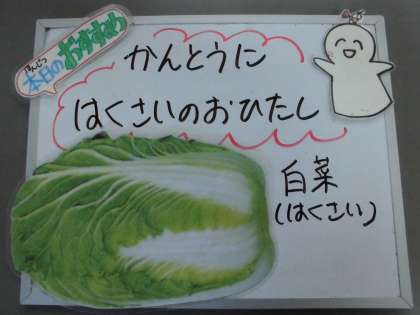 本日のおすすめ
かんとうに
はくさいのおひたし
白菜
(はくさい)